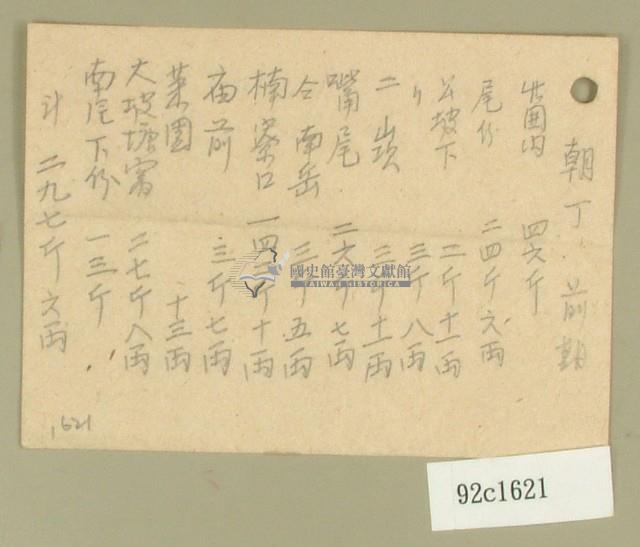 朝丁 前期
圍內 四六斤
尾份 二四斤六両
公坡下 二斤十一両
〃 三斤八両
二崁 三斤十一両
嘴尾 二六斤七両
仝南岳 斤五両
楠寮口 一四 斤十両
庙前 三斤七両
菜園 十三両
大坡塘 二七斤八両
南尾下份 一三斤
計 二九七斤六両
1621
國史館臺灣文獻館
TAIWAN HISTORICA
92c1621